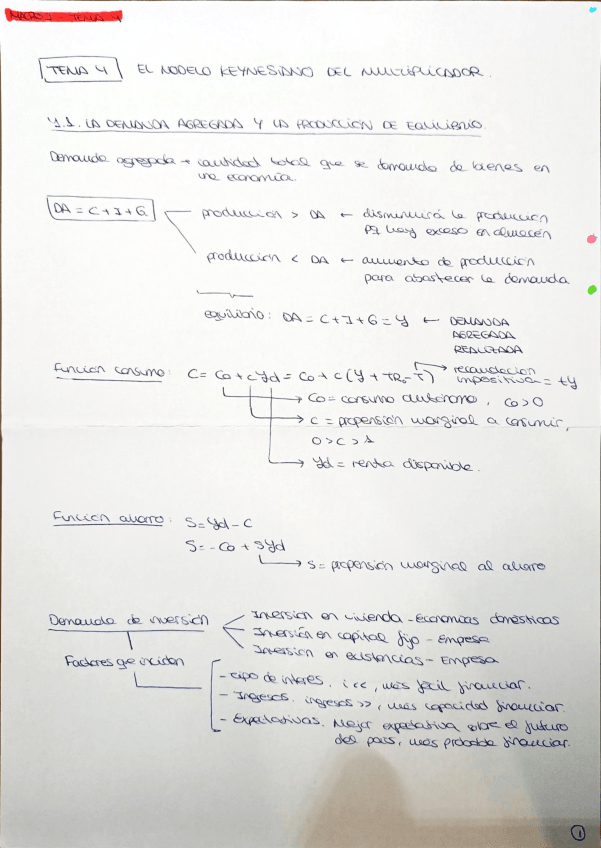 MACRO I TEMA 4
TEMA 4 EL MODELO KEYNESIANO DEL MULTIPLICADOR.
4.1. LA DEMANDA AGREGADA Y LA PRODUCCIÓN DE EQUILIBRIO.
Demanda agregada → cantidad total que se demanda de bienes en
una economía.
DA = C + I + G
producción > DA ← disminuirá la producción
pq hay exceso en almacén
producción < DA ← aumento de producción
para abastecer la demanda
equilibrio: DA = C + I + G = Y ← DEMANDA
AGREGADA
REALIZADA
Función consumo: C = Co + cYd = Co + c(Y + TRo - T) → recaudación
impositiva = tY
Co = consumo autónomo, Co > 0
c = propensión marginal a consumir,
0 > c > 1
Yd = renta disponible.
Función ahorro: S = Yd - C
S = - Co + sYd
s = propensión marginal al ahorro
Demanda de inversión
Inversión en vivienda - Economías domésticas
Inversión en capital fijo - Empresa
Inversión en existencias - Empresa
Factores qe inciden
- Tipo de interés. i <<, más fácil financiar.
- Ingresos. ingresos >>, más capacidad financiar.
- Expectativas. Mejor expectativa sobre el futuro
del país, más probable financiar.
1